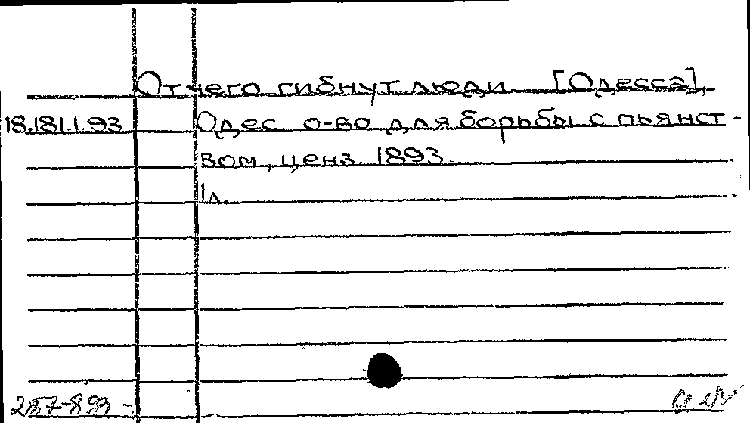 Отчего гибнут люди [Одесса],
18.181.1.93 Одес о-во для борьбы с пьянст-
вом, ценз 1893.
1 л.
257-893